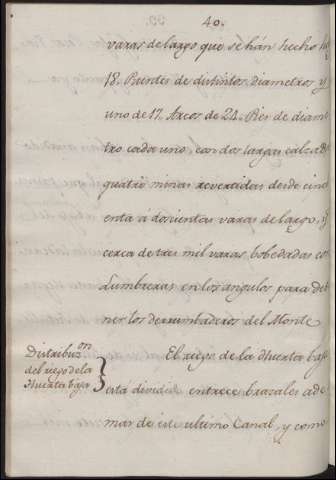 40.
varas de largo que se hán hecho
18. Puentes de distintos diametros, y
uno de 17. Arcos de 24. Pies de diame
tro cada uno, con dos largas calzad
quatro minas revertidas desde cinc
enta á dosientas varas de largo, y
cerca de tres mil varas bobedadas co
Lumbreras en los angulos para dete
ner los derrumbaderos del Monte
Distribuz.on
del riego de la
Huerta baja
El riego de la Huerta baja
está dividido entrece brazales ade
mas de este ultimo Canal, y como